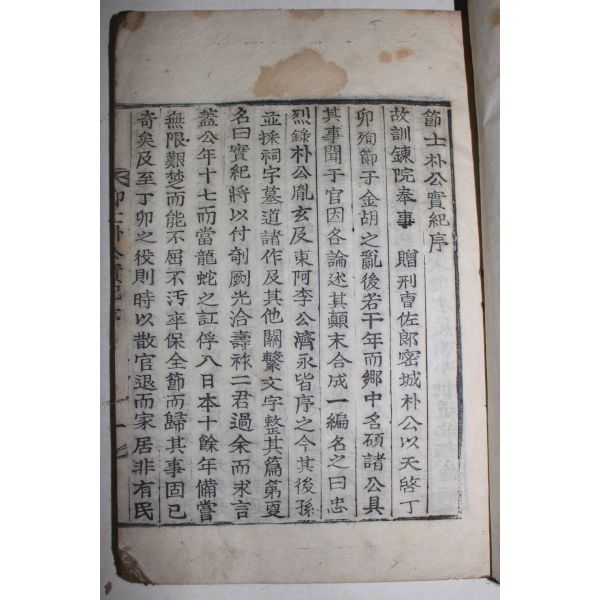 節士朴公實紀序
故訓鍊院奉事 贈刑曹佐郞密城朴公以天啓丁
卯殉節于金胡之亂後若干年而鄕中名碩諸公具
其事聞于官因各論述其顚末合成一編名之曰忠
烈錄朴公胤玄及東阿李公濟永皆序之今其後孫
並採祠宇墓道諸作及其他關繫文字整其篇第更
名曰實紀將以付剞劂光洽壽祚二君過余而求言
蓋公年十七而當龍蛇之訌俘入日本十餘年備嘗
無限艱楚而能不屈不汚卒保全節而歸其事固已
奇矣及至丁卯之役則時以散官退而家居非有民
節士朴公實紀序